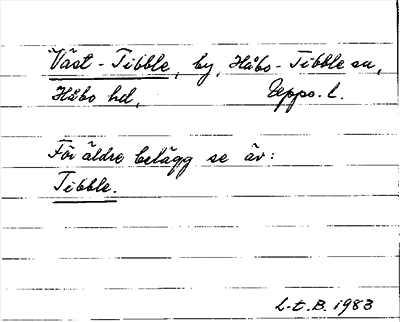 Väst-Tibble, by, Håbo-Tibble sn,
Håbo hd, Upps. l.
För äldre belägg se äv:
Tibble.
L-t. B. 1983